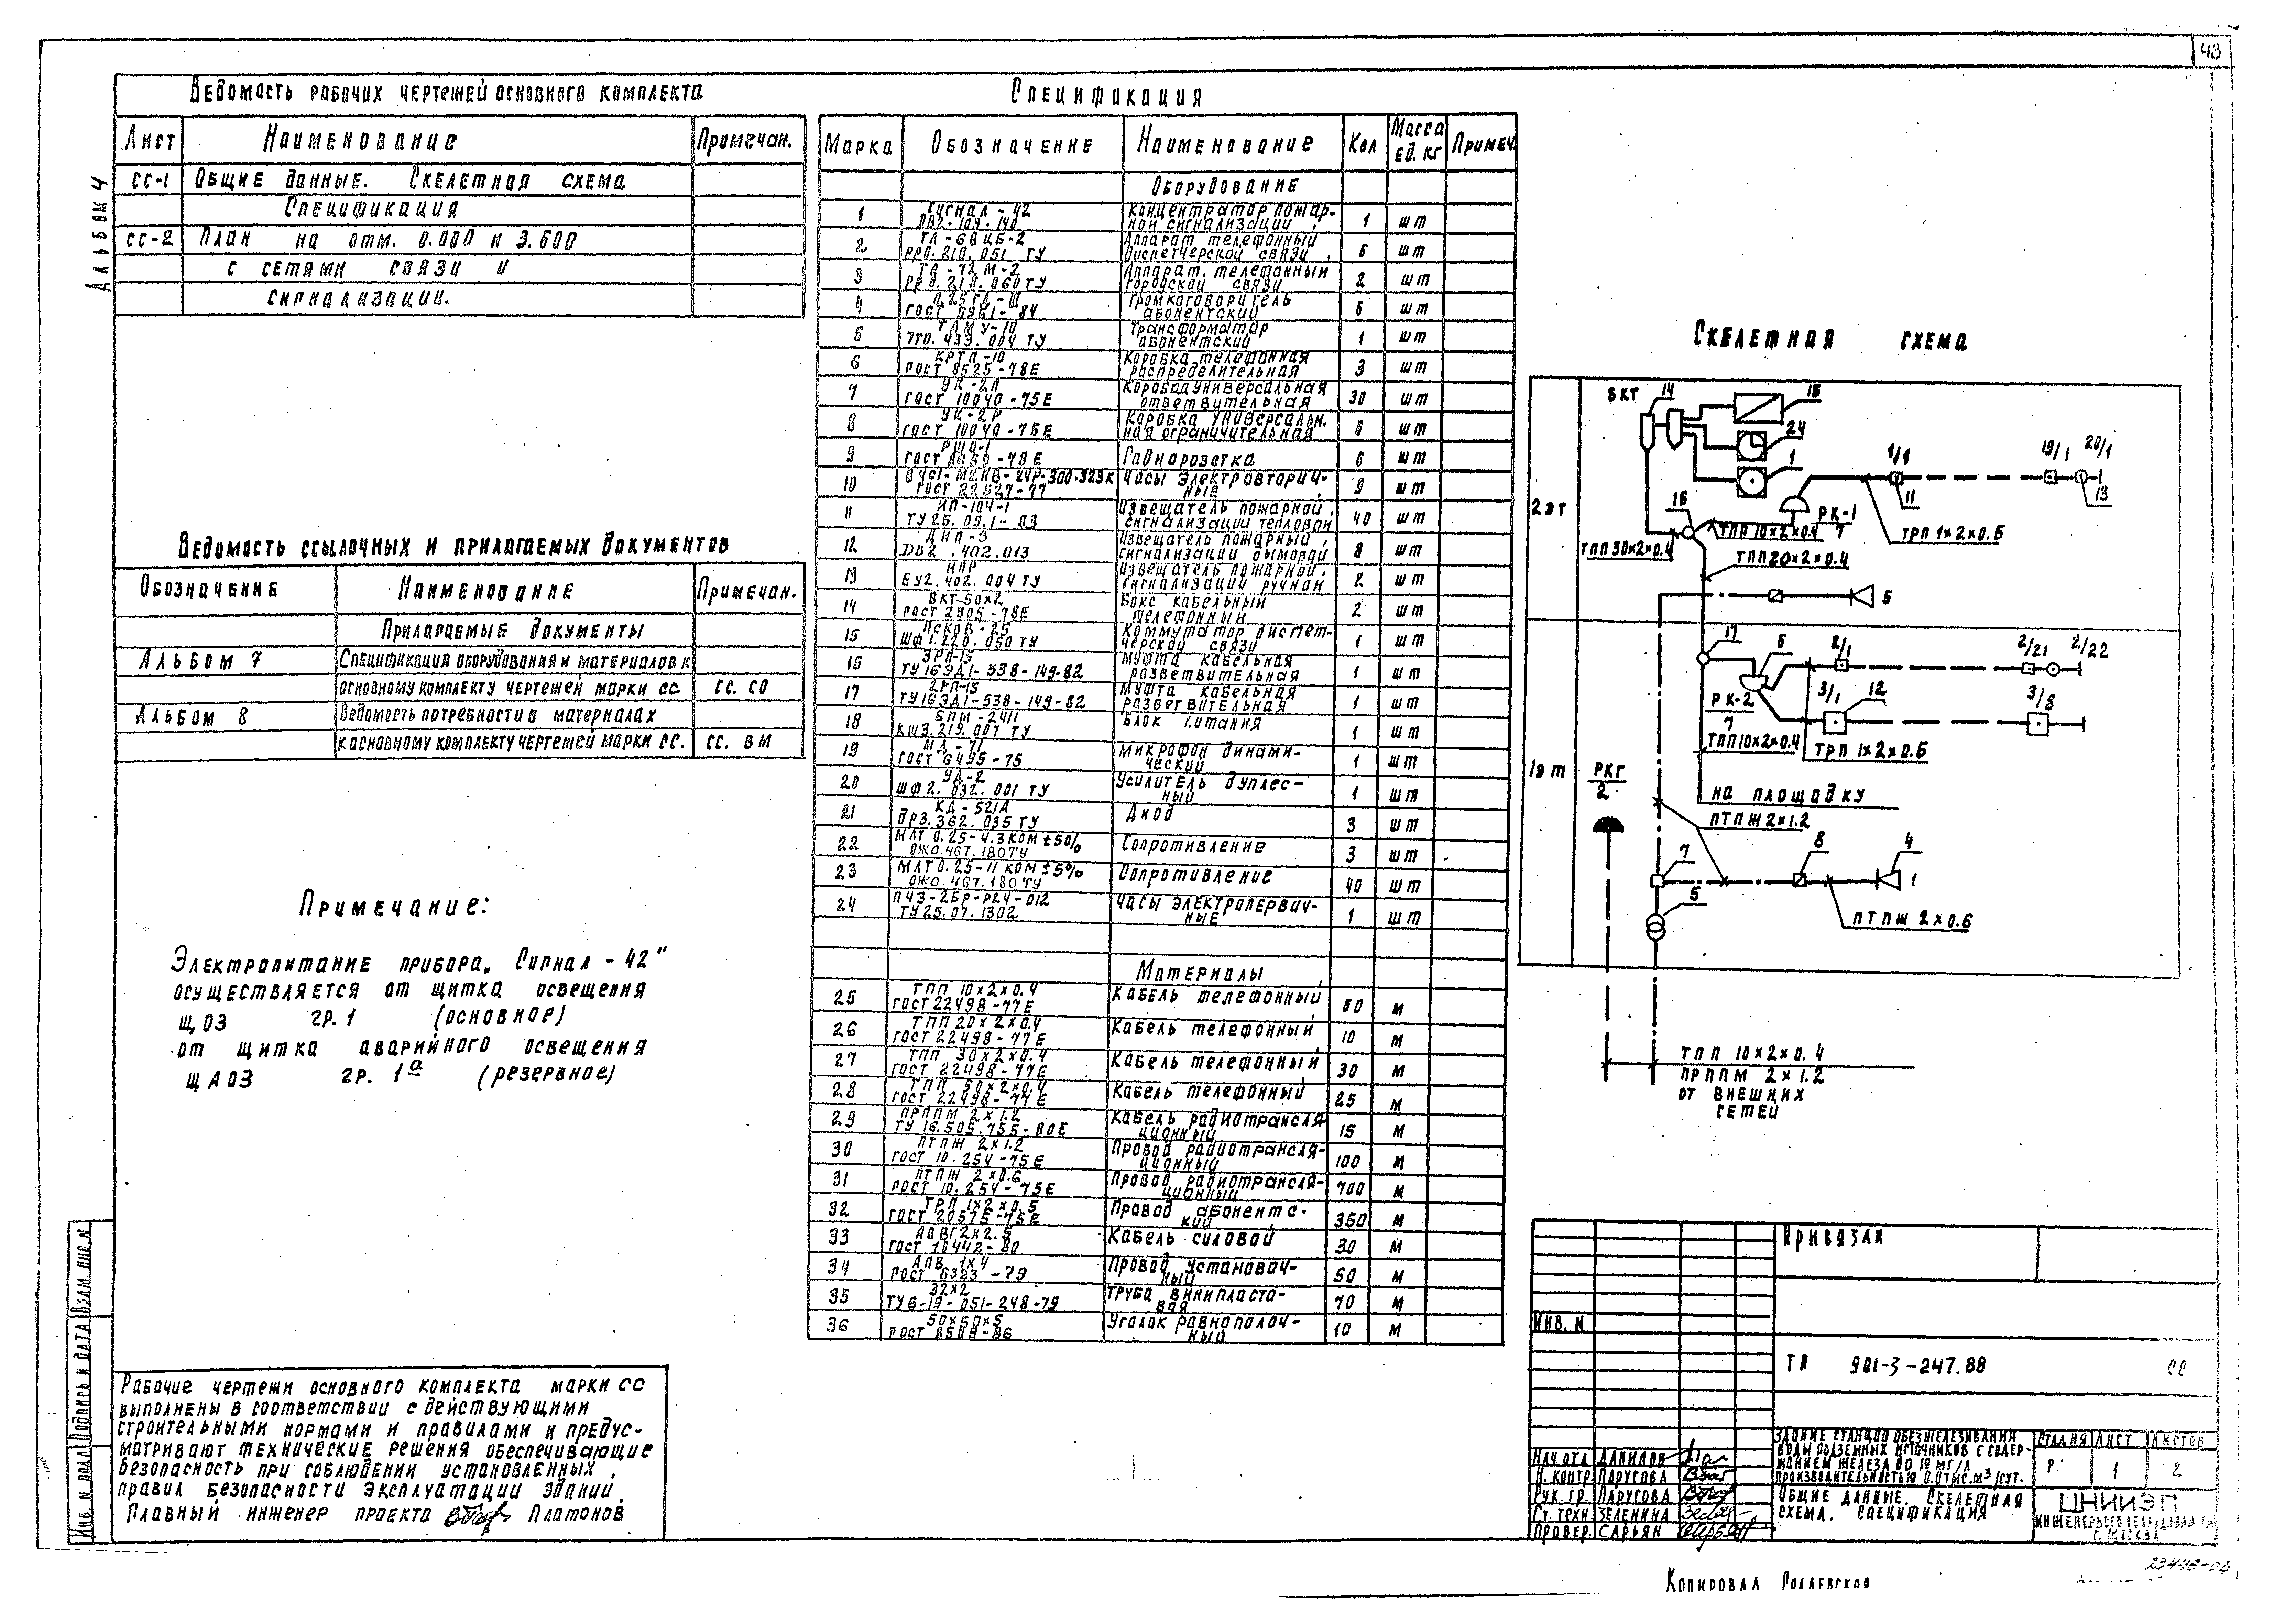 43
Альбом 4
Ведомость рабочих чертежей основного комплекта
Лист Наименование Примечан.
СС-1 Общие данные. Скелетная схема
Спецификация
СС-2 План на отм. 0.000 и 3.600
с сетями связи и
сигнализации.
Ведомость ссылочных и прилагаемых документов
Обозначение Наименование Примечан.
Прилагаемые документы
Альбом 7 Спецификация оборудования и материалов к
основному комплекту чертежей марки СС СС. СО
Альбом 8 Ведомость потребности в материалах
к основному комплекту чертежей марки СС. СС. ВМ
Примечание:
Электропитание прибора „Сигнал - 42"
осуществляется от щитка освещения
ЩО3 гр. 1 (основное)
от щитка аварийного освещения
ЩАО3 гр. 1а (резервное)
Рабочие чертежи основного комплекта марки СС
выполнены в соответствии с действующими
строительными нормами и правилами и предус-
матривают технические решения обеспечивающие
безопасность при соблюдении установленных
правил безопасности эксплуатации здания.
Главный инженер проекта Платонов
Инв. N подл Подпись и дата Взам. инв. N
Спецификация
Марка Обозначение Наименование Кол Масса ед. кг Примеч.
Оборудование
1 Сигнал - 42 Концентратор пожар- 1 шт
ДВ2. 109. 140 ной сигнализации
2 ТА - 68 ЦБ-2 Аппарат телефонный 6 шт
РР0. 218. 051 ТУ диспетчерской связи
3 ТА - 72 М-2 Аппарат телефонный 2 шт
РР0. 218. 060 ТУ городской связи
4 0.25 ГД - III Громкоговоритель 6 шт
ГОСТ 5961 - 84 абонентский
5 ТАМУ-10 Трансформатор 1 шт
7Т0. 433. 004 ТУ абонентский
6 КРТП -10 Коробка телефонная 3 шт
ГОСТ 8525 - 78Е распределительная
7 УК - 2П Коробка универсальная 30 шт
ГОСТ 10040 - 75Е ответвительная
8 УК - 2Р Коробка универсальн. 6 шт
ГОСТ 10040 - 75Е ная ограничительная
9 РШО-1 Радиорозетка 6 шт
ГОСТ 8659 - 78Е
10 ВЧС1-М2ПВ-24Р-300-323К Часы электровторич- 9 шт
ГОСТ 22527 - 77 ные
11 ИП-104-1 Извещатель пожарной 40 шт
ТУ 25. 09. 1 - 83 сигнализации теплован
12 ДИП-3 Извещатель пожарный 8 шт
ДВ2. 402. 013 сигнализации дымовой
13 ИПР Извещатель пожарной 2 шт
ЕУ2. 402. 004 ТУ сигнализации ручнан
14 БКТ-50х2 Бокс кабельный 2 шт
ГОСТ 2305 - 78Е телефонный
15 Псков - 25 Коммутатор диспет- 1 шт
ШФ1. 220. 050 ТУ черской связи
16 3РП-15 Муфта кабельная 1 шт
ТУ 16ЭД1 - 538 - 149-82 разветвительная
17 2РП-15 Муфта кабельная 1 шт
ТУ 16ЭД1 - 538 - 149 - 82 разветвительная
18 БПМ - 24/1 Блок питания 1 шт
КШ3. 219. 007 ТУ
19 МД - 71 Микрофон динами- 1 шт
ГОСТ 6495 - 75 ческий
20 УД-2 Усилитель дуплес- 1 шт
ШФ2. 032. 001 ТУ ный
21 КД - 521А Диод 3 шт
др3. 362. 035 ТУ
22 МЛТ 0.25 - 4.3 КОМ ± 50% Сопротивление 3 шт
ОЖ0. 467. 180 ТУ
23 МЛТ 0.25 - 11 КОМ ± 5% Сопротивление 40 шт
ОЖ0. 467. 180 ТУ
24 ПЧ3 - 2БР - Р24 - 012 Часы электропервич- 1 шт
ТУ 25. 07. 1302 ные
Материалы
25 ТПП 10х2х0.4 Кабель телефонный 60 м
ГОСТ 22498 - 77Е
26 ТПП 20х2х0.4 Кабель телефонный 10 м
ГОСТ 22498 - 77Е
27 ТПП 30х2х0.4 Кабель телефонный 30 м
ГОСТ 22498 - 77Е
28 ТПП 50х2х0.4 Кабель телефонный 25 м
ГОСТ 22498 - 77Е
29 ПРППМ 2х1.2 Кабель радиотрансля- 15 м
ТУ 16.505. 755 - 80Е ционный
30 ПТПЖ 2х1.2 Провод радиотрансля- 100 м
ГОСТ 10. 254 - 75Е ционный
31 ПТПЖ 2х0.6 Провод радиотрансля- 700 м
ГОСТ 10. 254 - 75Е ционный
32 ТРП 1х2х0.5 Провод абонентс- 350 м
ГОСТ 20575 - 75Е кий
33 АВВГ 2х2.5 Кабель силовой 30 м
ГОСТ 16442 - 80
34 АПВ 1х4 Провод установоч- 50 м
ГОСТ 6323 - 79 ный
35 32х2 Труба винипласто- 70 м
ТУ6-19 - 051 - 248 - 79 вая
36 50х50х5 Уголок равнополоч- 10 м
ГОСТ 8509 - 86 ный
Скелетная схема
2 эт
БКТ 14 15
24
1
1/1 19/1 20/1
11 13
16
РК-1
7
ТПП 30х2х0.4 ТПП 10х2х0.4 ТРП 1х2х0.5
ТПП 20х2х0.4
5
1 эт
17 6 2/1 2/21 2/22
РК-2
7
3/1 12 3/8
ТПП 10х2х0.4 ТРП 1х2х0.5
РКГ
2
на площадку
ПТПЖ 2х1.2
7 8 4
1
5
ПТПЖ 2х0.6
ТПП 10х2х0.4
ПРППМ 2х1.2
от внешних
сетей
Привязан
Инв. N
ТП 901-3-247.88 СС
Здание станции обезжелезивания
воды подземных источников с содер-
жанием железа до 10 мг/л
производительностью 8.0 тыс. м³/сут.
Стадия Лист Листов
Р. 1 2
Общие данные. Скелетная
схема. Спецификация
ЦНИИЭП
инженерного оборудования
г. Москва
Нач отд Данилов
Н. контр. Паругова
Рук. гр. Паругова
Ст. техн. Зеленина
Провер. Сарьян
Копировал
23448-04